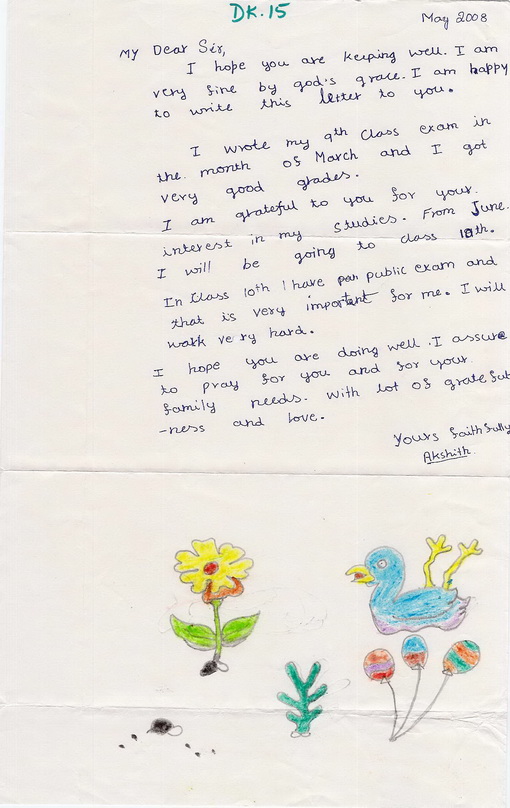 DK.15
May 2008
My Dear Sir,
I hope you are keeping well. I am
very fine by god's grace. I am happy
to write this letter to you.
I wrote my 9th Class exam in
the month of March and I got
very good grades.
I am grateful to you for your
interest in my studies. From June.
I will be going to class 10th.
In Class 10th I have public exam and
that is very important for me. I will
work very hard.
I hope you are doing well. I assure
to pray for you and for your
family needs. With lot of grateful
-ness and love.
Yours faithfully
Akshith.